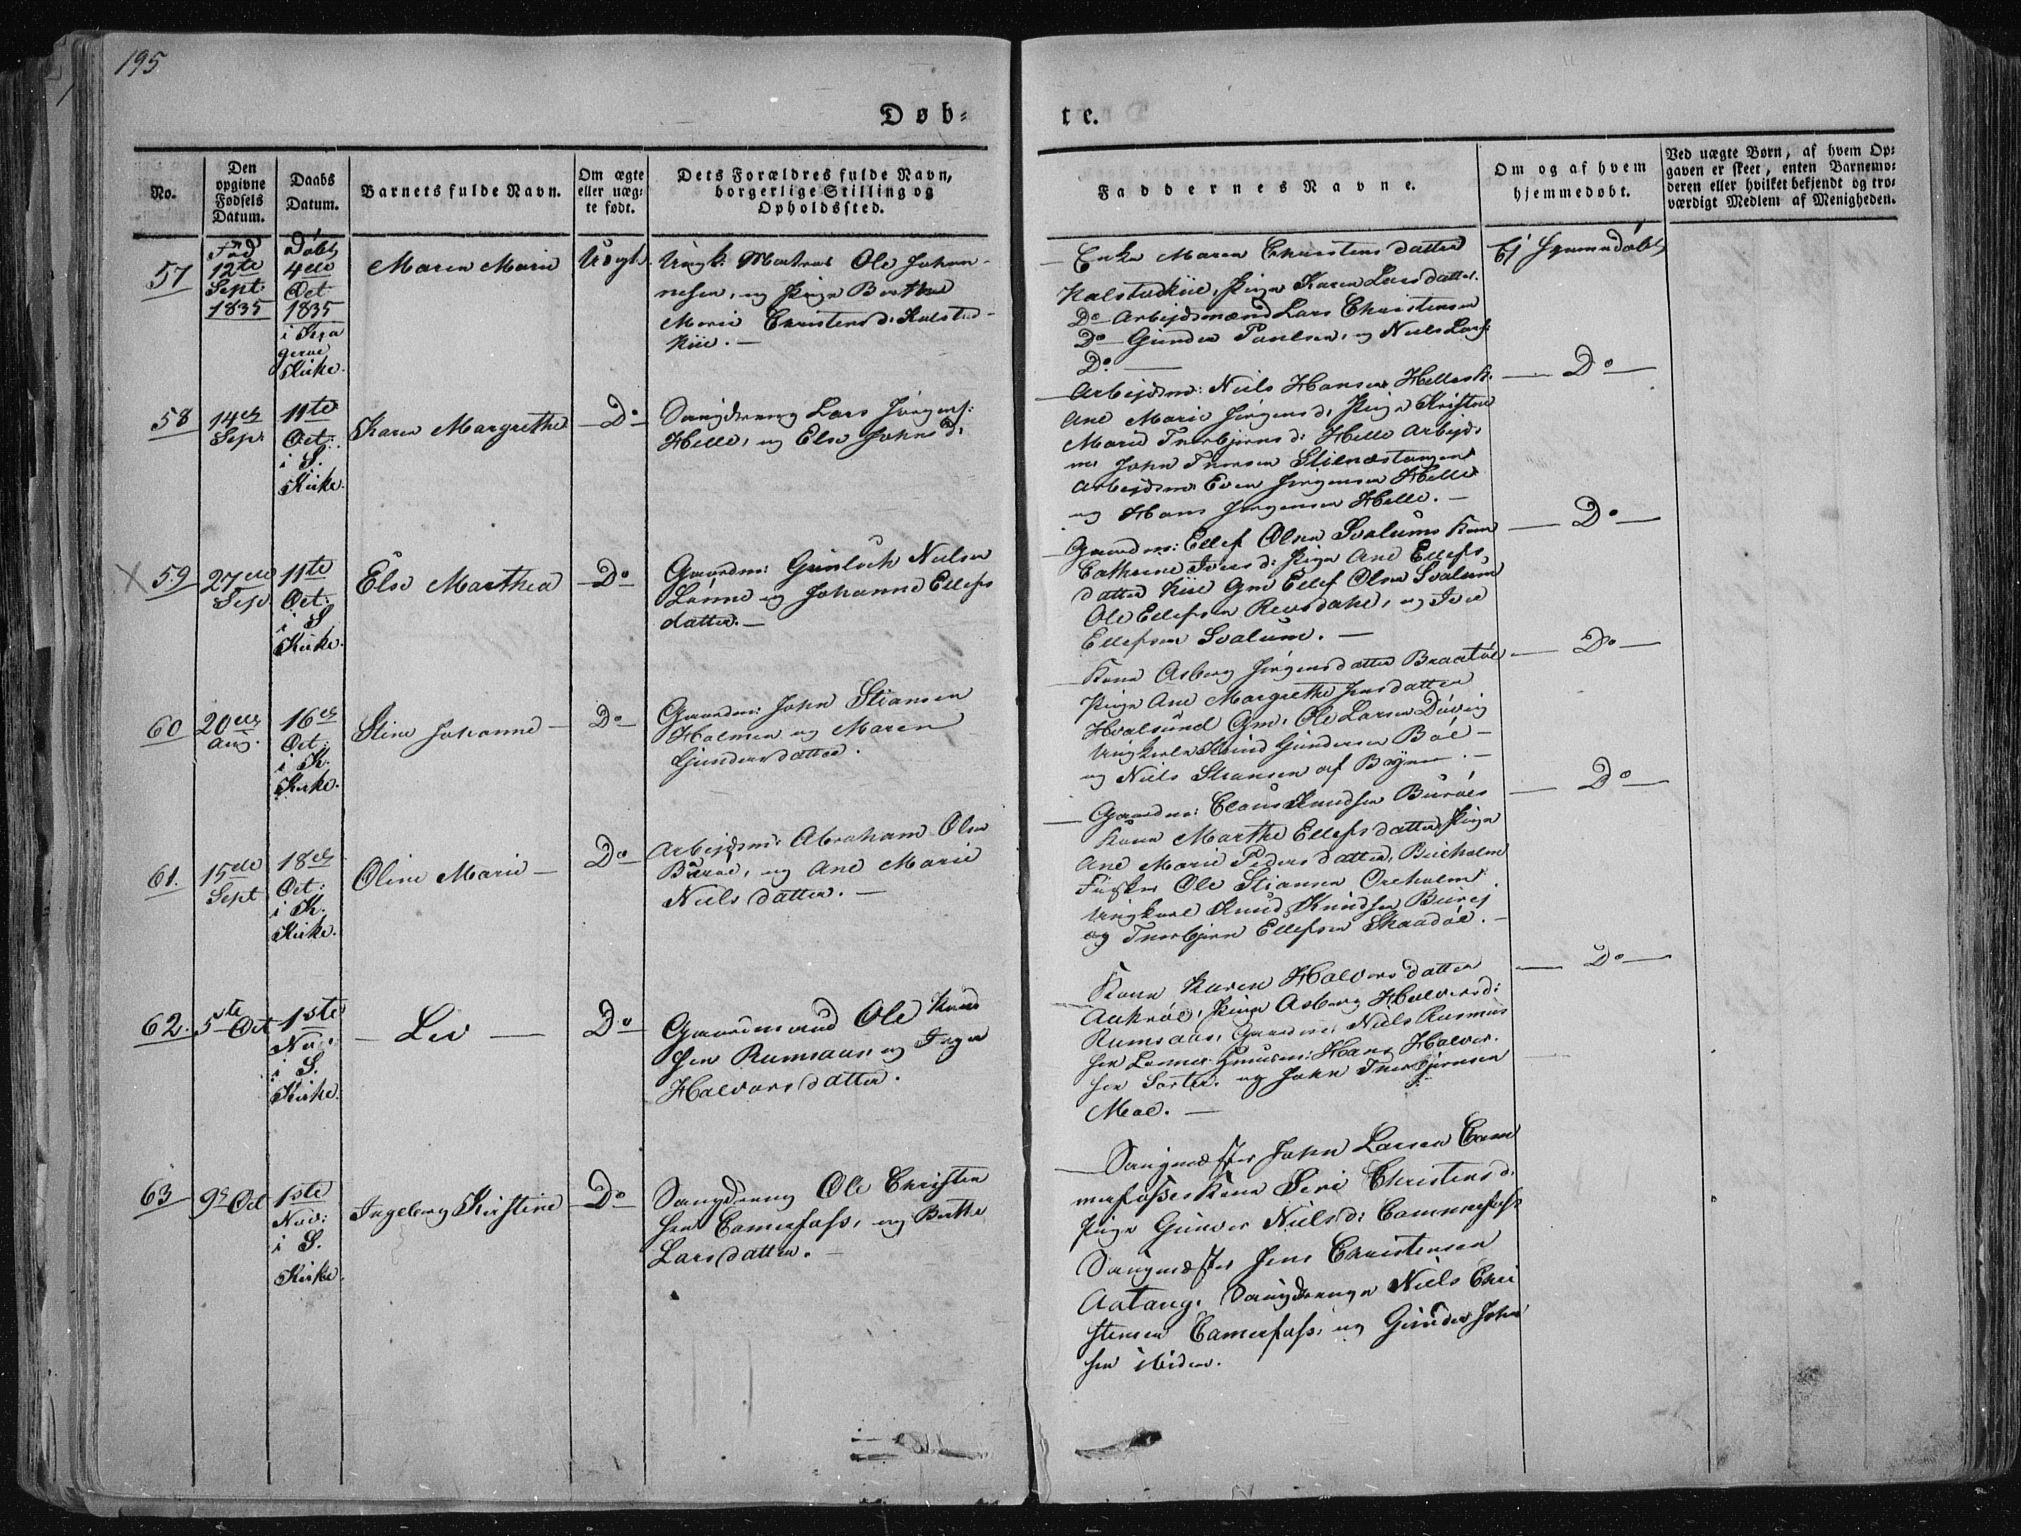 195
Døb-
te.
No.
Den
opgivne
Fødsels
Datum.
Daabs
Datum.
Barnets fulde Navn.
Om ægte
eller uæg-
te født.
Dets Forældres fulde Navn,
borgerlige Stilling og
Opholdssted.
Faddernes Navne.
Om og af hvem
hjemmedøbt.
Ved uægte Børn, af hvem Op-
gaven er skeet, enten Barnemo-
deren eller hvilket bekjendt og tro-
værdigt Medlem af Menigheden.
57
Fød
12te
Sept
1835
Døbt
4de
Oct
1835
i
Kirke
Maren Marie
Matros Ole Johan-
nesen, og Pige Berthe
Marie Christensd: Kalsted-
kiil.
Enke Maren Christensdatter
Pige Karen Larsdatter
Do Arbejdsmænd Lars Christensen
Do Gunder Paulsen, og Niels Lars:
Do
Ej hjemmedøbt
58
14de
Sep.
11te
Oct:
i S.
Kirke.
Karen Margrethe
Do
Lars Jørgens:
Helle, og Else Johnsd:
Arbejdsm: Niels Hansen Helle
Ane Marie Jørgensd: Pige Kristine
Marie Thorbjørnsd: Helle Arbejds
m: John Thorsen Stilnæstangen
Arbejdsm: Even Jørgensen Helle
og Hans Jørgensen Helle.
Do
X 59
27de
Sep
11te
Oct:
i S
Kirke.
Else Marthea
Do
Gaardm: Gunlech Nielsen
Lønne og Johanne Ellefs
datter.
Gaardm: Ellef Olsen Svalums Kone
Cathrine Iversd: Pige Ane Ellefs
datter Kiil Gm Ellef Olsen Svalum
Ole Ellefsen og Iver
Ellefsen Svalum.
Do
60
20de
Aug.
16de
Oct:
i K.
Kirke.
Stine Johanne
Do
Gaardm: John Stiansen
Holmen og Maren
Gundersdatter.
Kone Asberg Jørgensdatter Braatøe
Pige Ane Margrethe Jensdatter
Hvalsund Gm: Ole Larsen
Ungkarl Gundersen
og Niels Stiansen af Bøyen.
Do
61.
15de
Sept
18de
Oct:
i K.
Kirke.
Oline Marie
Do
Arbejdsm: Abraham Olsen
Burøe, og Ane Marie
Nielsdatter.
Gaardm: Claus Knudsen Burøes
Kone Marthe Ellefsdatter Pige
Ane Marie Pedersdatter
Fisker Ole Stiansen Oreholm
Ungkarl Knud Knudsen
og Thorbjørn Ellefsen Skaadøe.
Do
62.
5te Oct
1ste
Nov:
i S.
Kirke.
Liv
Do
Gaardmand Ole Knud
sen Rumsaas og Inger
Halvorsdatter.
Kone Karen Halvorsdatter
Pige Asberg Halvorsd:
Rumsaas, Gaardm: Niels Rasmus
sen Lønne Hans Halvor
sen og John Thorbjørnsen
Moe.
Do
63
9de Oct
1ste
Nov:
i S.
Kirke.
Ingeborg Kirstine
Do
Ole Christen
sen Camerfoss, og Berthe
Larsdatter.
Saugmester John Larsen Cam
merfosses Kone Siri Christensd:
Pige Gunvor Nielsd: Cammerfoss
Saugmester Jens Christensen
Aatang, Saugdrenge Niels Chri
stensen Camerfoss, og Gunder John
sen ibidem.